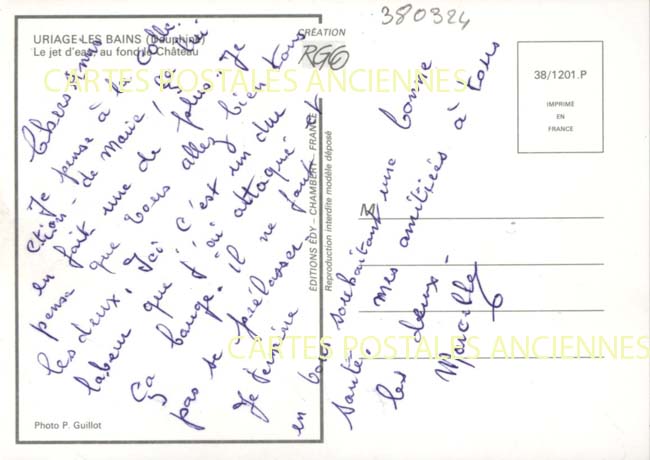 380324
URIAGE-LES BAINS (Dauphiné)
Le jet d'eau au fond le Château
CRÉATION
RG6
CARTES POSTALES ANCIENNES
38/1201.P
IMPRIMÉ
EN
FRANCE
Chers amis
Je pense à la Colle
ction - de Marie je lui
en fait une de plus. Je
pense que vous allez bien tous
les deux. Ici c'est un dur
labeur que j'ai attaqué
Ça bouge. Il ne faut
pas se prélasser
Je termine et
en vous souhaitant une bonne
santé. mes amitiés à tous
les deux -
Marcelle
M
EDITIONS EDY - CHAMBERY - FRANCE
Reproduction interdite modèle déposé
CARTES POSTALES ANCIENNES
Photo P. Guillot